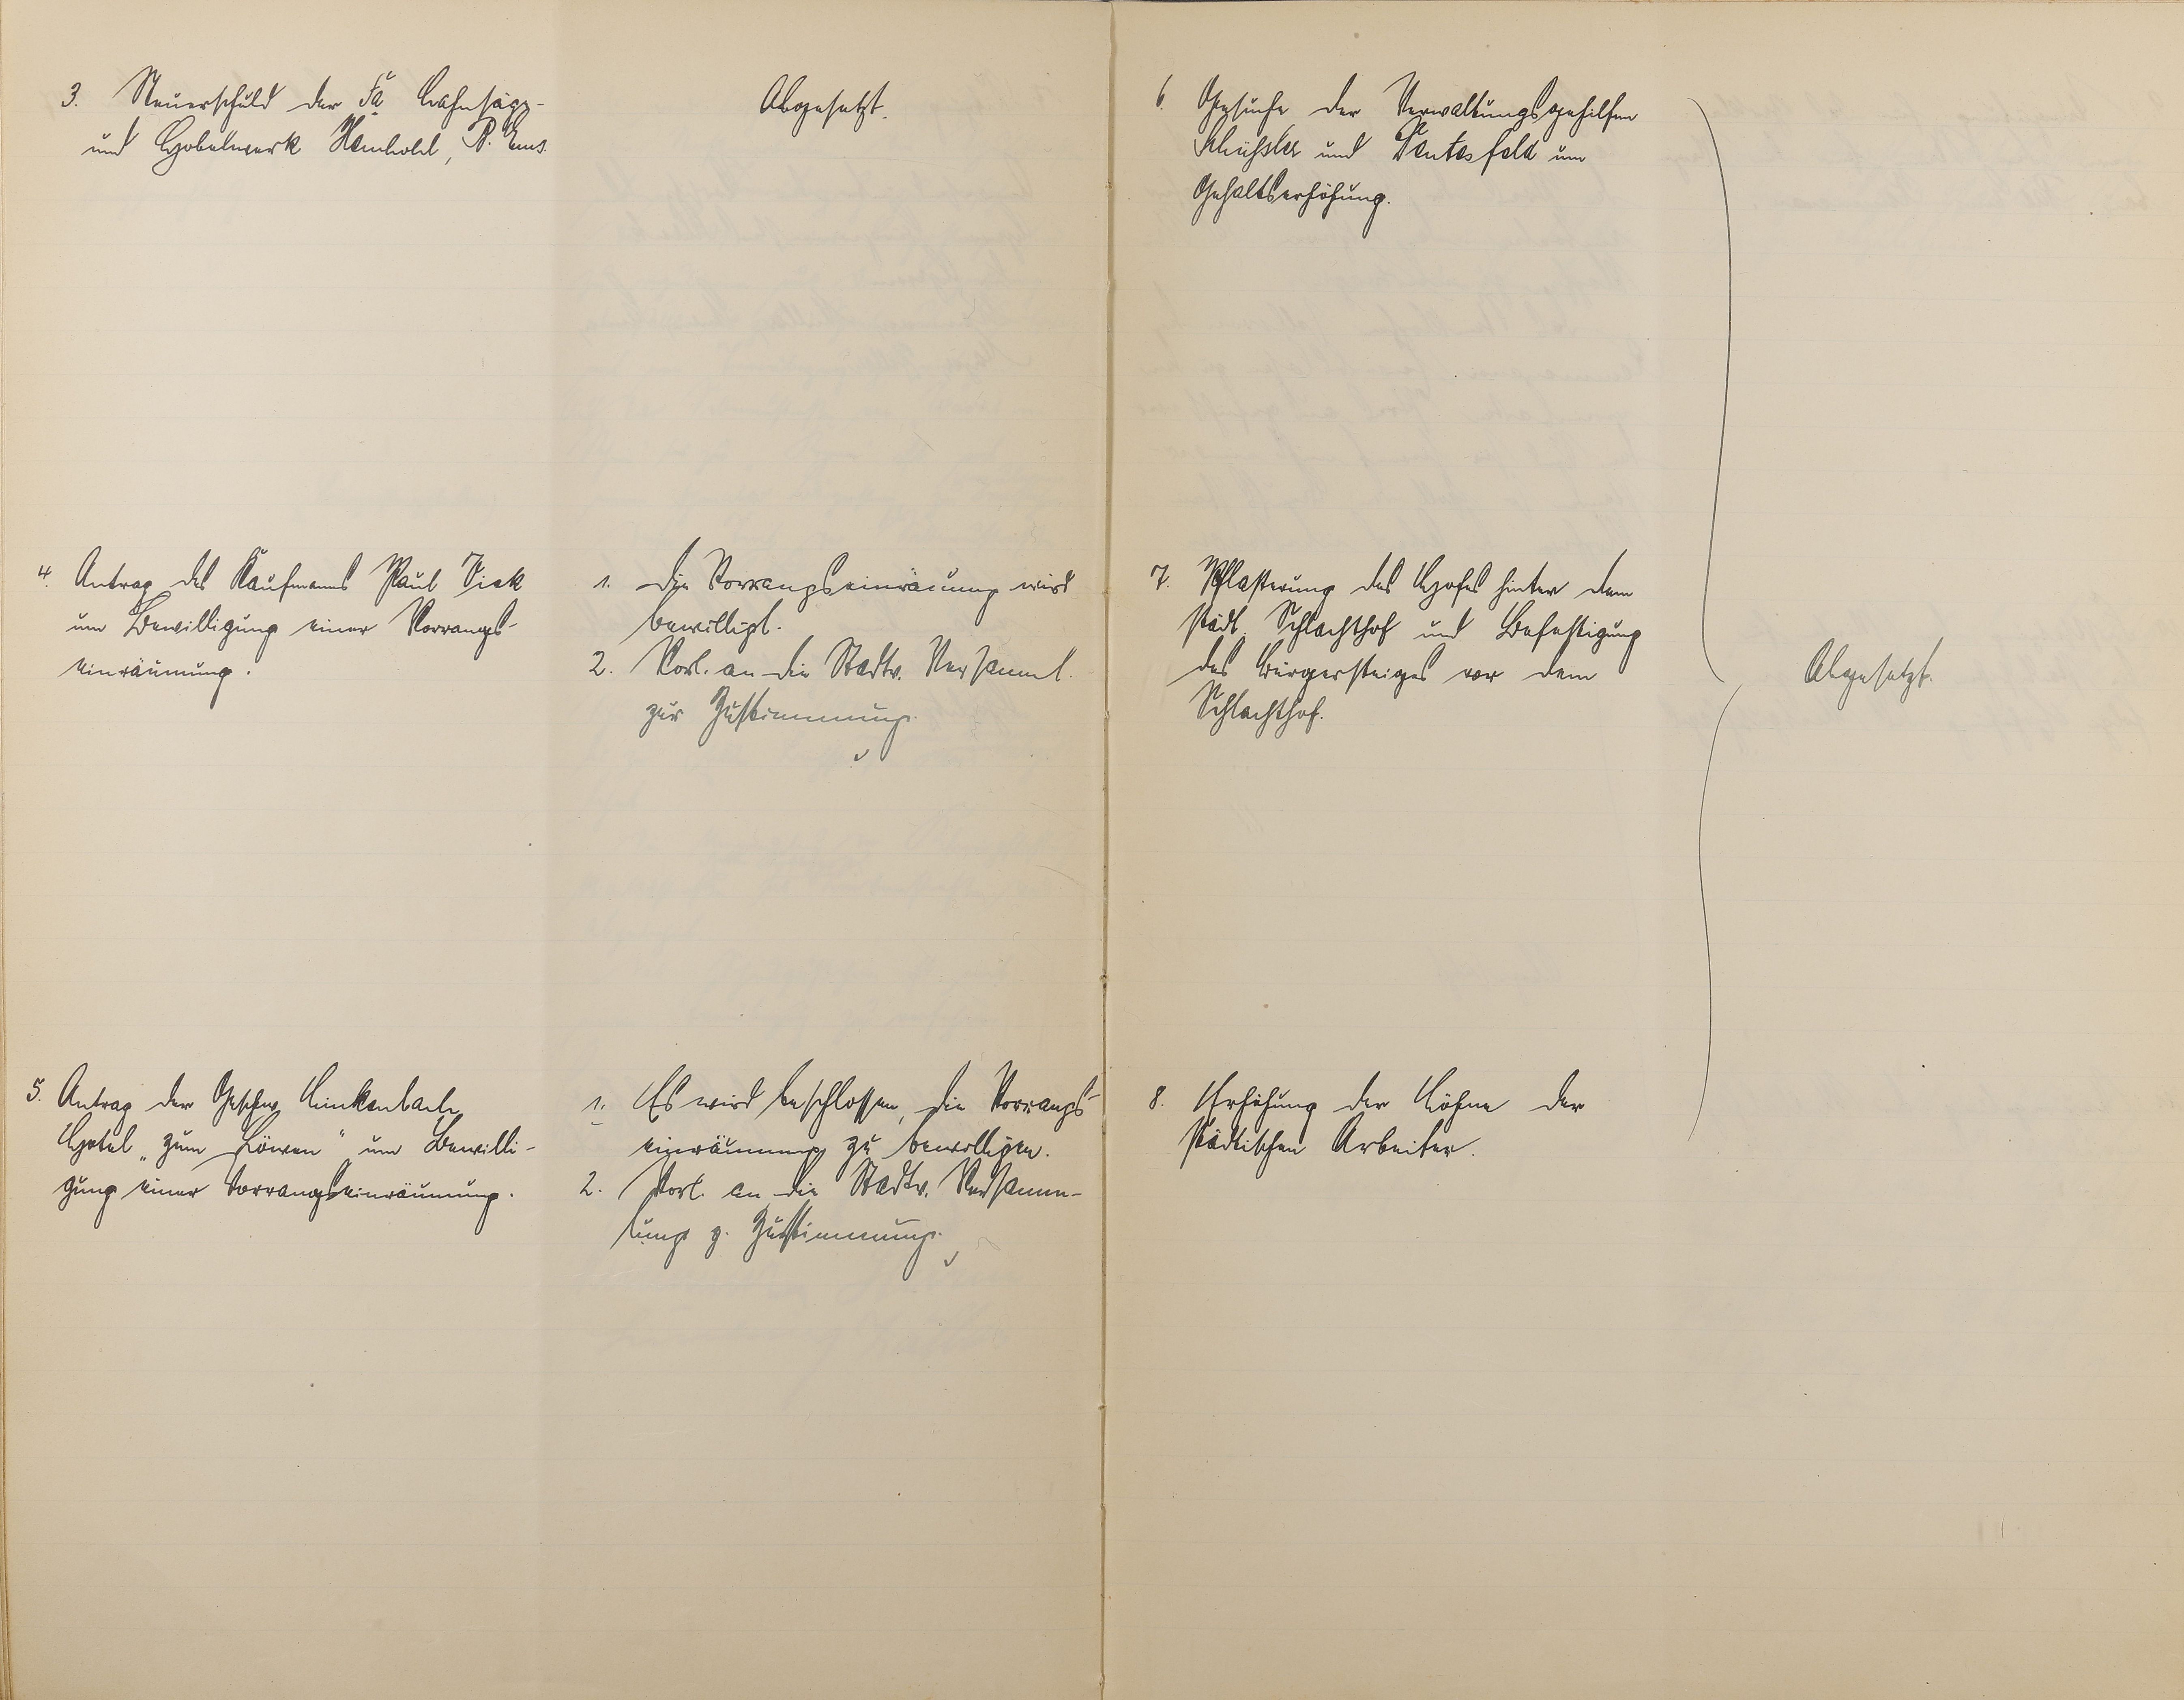 3. Steuerschuld der Fa Lahnsäge-
und Hobelwerk Heinhold, B. Ems.
Abgesetzt.
4. Antrag des Kaufmanns Paul Fick
um Bewilligung einer Vorrangs-
einräumung.
1. Die Vorrangseinräumung wird
bewilligt.
2. Vorl. an die Stadtv. Versamml.
zur Zustimmung.
5. Antrag der Geschw. Linkenbach
Hotel „zum Löwen" um Bewilli-
gung einer Vorrangseinräumung.
1. Es wird beschlossen, die Vorrangs-
einräumung zu bewilligen.
2. Vorl. an die Stadtv. Versamm-
lung z. Zustimmung.
6. Gesuche der Verwaltungsgehilfen
und um
Gehaltserhöhung.
7. Pflasterung des Hofes hinter dem
städt. Schlachthof und Befestigung
des Bürgersteiges vor dem
Schlachthof.
8. Erhöhung der Löhne der
städtischen Arbeiter.
Abgesetzt.